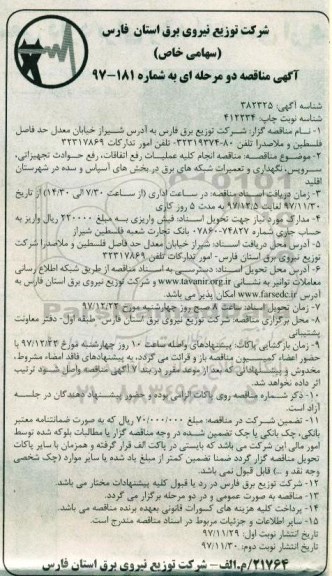 شرکت توزیع نیروی برق استان فارس
(سهامی خاص)
آگهی مناقصه دو مرحله ای به شماره ۱۸۱-۹۷
شناسه آگهی: ۳۸۲۳۲۵
شناسه نوبت چاپ: ۴۱۲۳۳۴
۱- نام مناقصه گزار: شرکت توزیع برق فارس به آدرس شیراز خیابان معدل حد فاصل
فلسطین و ملاصدرا تلفن ۸۰-۳۲۳۱۹۳۷۴- تلفن امور تدارکات ۳۲۳۱۷۸۶۹
۲- موضوع مناقصه: مناقصه انجام کلیه عملیات رفع اتفاقات، رفع حوادث تجهیزاتی،
سرویس، نگهداری و تعمیرات شبکه های برق در بخش های آسپاس و سده در شهرستان
اقلید
۳- زمان دریافت اسناد مناقصه: در ساعت اداری (از ساعت ۷/۳۰ الی ۱۴/۳۰) از تاریخ
۹۷/۱۱/۳۰ لغایت ۹۷/۱۲/۵ به مدت ۵ روز کاری
۴- مدارک مورد نیاز جهت تحویل اسناد: فیش واریزی به مبلغ ۲۲۰۰۰۰ ریال واریز به
حساب جاری شماره ۰۷۸۶۰۰۷۴۸۲۷ بانک تجارت شعبه فلسطین شیراز
۵- آدرس محل دریافت اسناد: شیراز خیابان معدل حد فاصل فلسطین و ملاصدرا شرکت
توزیع نیروی برق استان فارس- امور تدارکات تلفن ۳۲۳۱۷۸۶۹
۶- آدرس محل تحویل اسناد: دسترسی به اسناد مناقصه از طریق شبکه اطلاع رسانی
معاملات توانیر به نشانی www.tavanir.org.ir و شرکت توزیع نیروی برق فارس به
آدرس www.farsedc.ir امکان پذیر می باشد.
۷- زمان تحویل اسناد: ساعت ۹ صبح روز چهارشنبه مورخ ۹۷/۱۲/۲۲
۸- محل برگزاری مناقصه: شرکت توزیع نیروی برق استان فارس- طبقه اول- دفتر معاونت
پشتیبانی
۹- زمان بازگشای پاکات: پیشنهادهای واصله ساعت ۱۰ روز چهارشنبه مورخ ۹۷/۱۲/۲۲ با
حضور اعضاء کمیسیون مناقصه باز و قرائت می گردد، به پیشنهادهای فاقد امضاء مشروط،
مخدوش و پیشنهاداتی که بعد از موعد مقرر در بند ۷ آگهی مناقصه واصل شود ترتیب
اثر داده نخواهد شد.
۱۰- ذکر شماره مناقصه روی پاکات الزامی بوده و حضور پیشنهاد دهندگان در جلسه
آزاد است
۱۱- تضمین شرکت در مناقصه: مبلغ ۷۰/۰۰۰/۰۰۰ ریال که به صورت ضمانتنامه معتبر
بانکی، چک بانکی یا چک تضمین شده در وجه مناقصه گزار یا مطالبات بلوکه شده توسط
امور مالی این شرکت می باشد که بایستی در پاکت الف قرار گرفته و همزمان با سایر پاکات
تحویل مناقصه گزار گردد ضمنا تضمین کمتر از مبلغ یاد شده یا سایر موارد (چک شخصی
وجه نقد و ...) قابل قبول نمی باشد.
۱۲- شرکت توزیع برق فارس در رد یا قبول کلیه پیشنهادات مختار می باشد
۱۳- مناقصه به صورت عمومی و در دو مرحله برگزار می گردد.
۱۴- پرداخت کلیه هزینه های کسورات قانونی بعهده برنده مناقصه می باشد.
۱۵- سایر اطلاعات و جزئیات مربوط در اسناد مناقصه مندرج است.
تاریخ انتشار نوبت اول: ۹۷/۱۱/۲۹
تاریخ انتشار نوبت دوم: ۹۷/۱۱/۳۰
۲۱۷۶۴/م.الف- شرکت توزیع نیروی برق استان فارس